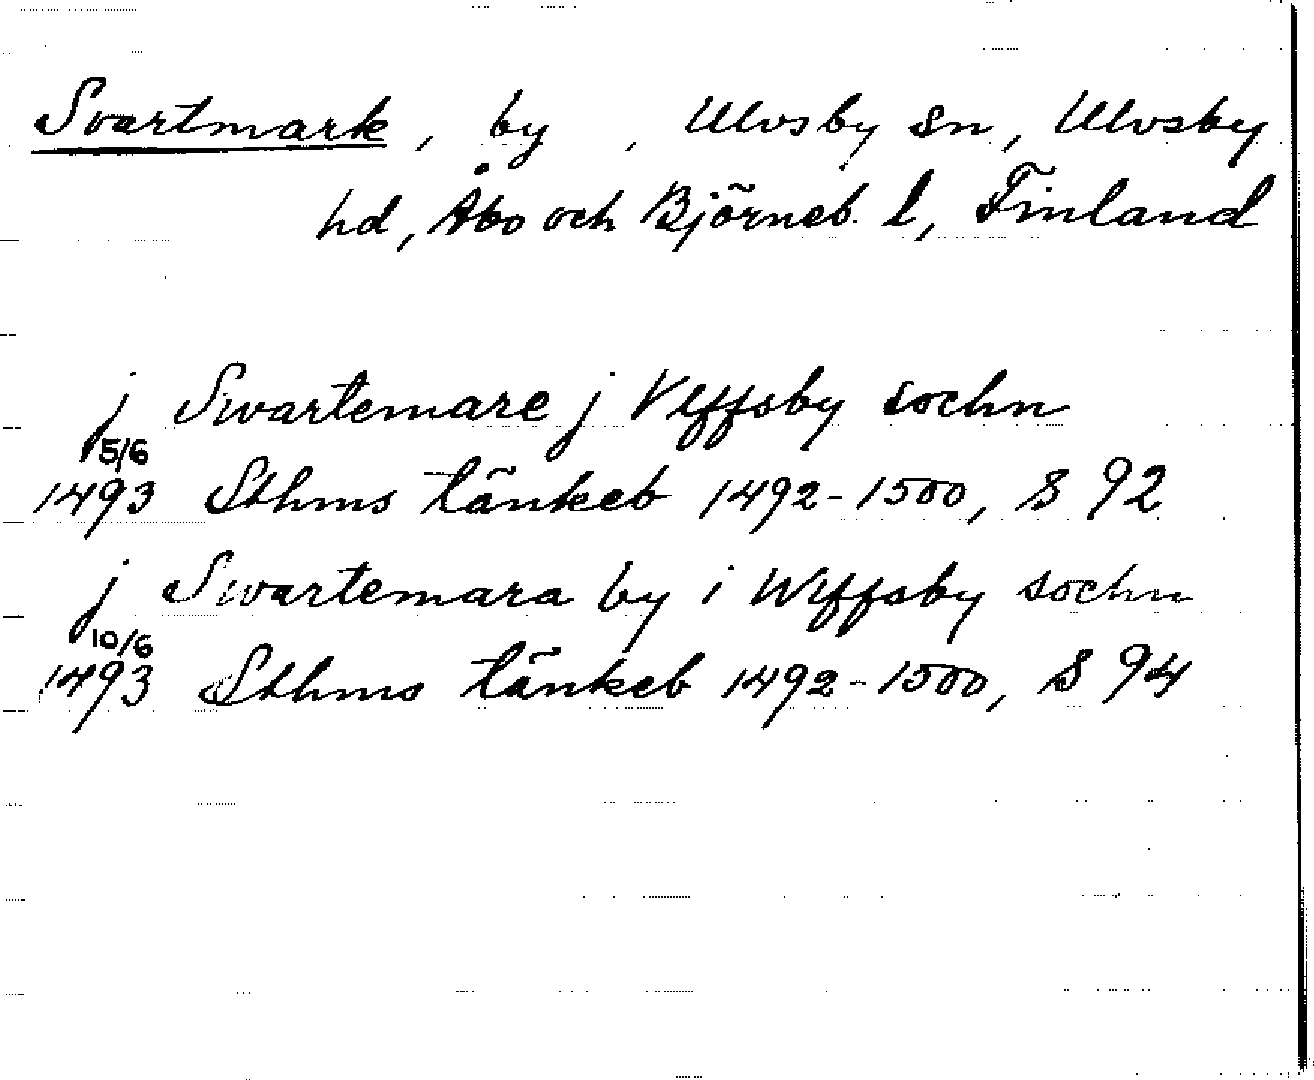 Svartmark, by, Ulvsby sn, Ulvsby
hd, Åbo och Björneb. l, Finland
j Swartemare j Vlffsby sochn
5/6
1493 Sthms tänkeb 1492-1500, s 92
j Swartemara by i Wlffsby sochn
10/6
1493 Sthms tänkeb 1492-1500, s 94